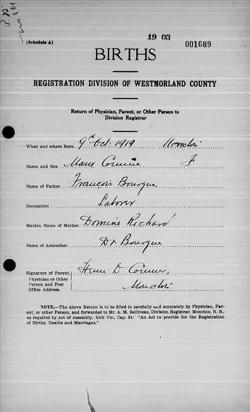 19 03
001689
(Schedule A)
BIRTHS
REGISTRATION DIVISION OF WESTMORLAND COUNTY
Return of Physician, Parent, or Other Person to
Division Registrar
When and where Born. 9 Oct. 1919 Moncton
Name and Sex. Marie Corinne F
Name of Father. Francois Bourque
Occupation Laborer
Maiden Name of Mother. Domine Richard
Name of Accoucher. Dr Bourque
Signature of Parent,
Physician or Other
Person and Post
Office Address
Moncton
NOTE.—The above Return is to be filled in carefully and accurately by Physician, Par-
ent, or other Person, and forwarded to Mr. A. M. Sullivan, Division Registrar, Moncton, N. B.,
as required by Act of Assembly, 50th Vic., Cap. 54: "An Act to provide for the Registration
of Births, Deaths and Marriages."